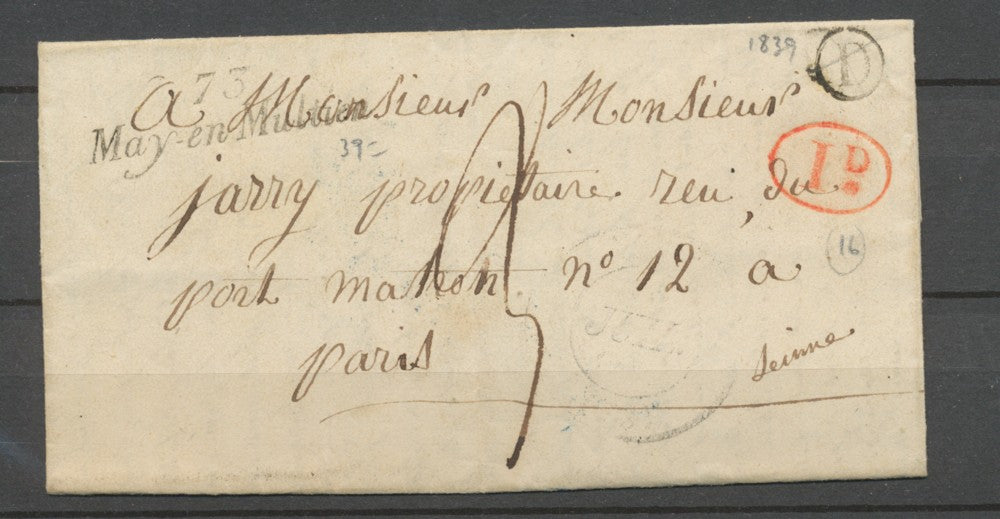 1839
D
73
A Monsieur Monsieur
May-en-Multien
39=
1D
jarry propietaire reu du
16
port mahon n° 12 a
JUIL
paris
seinne